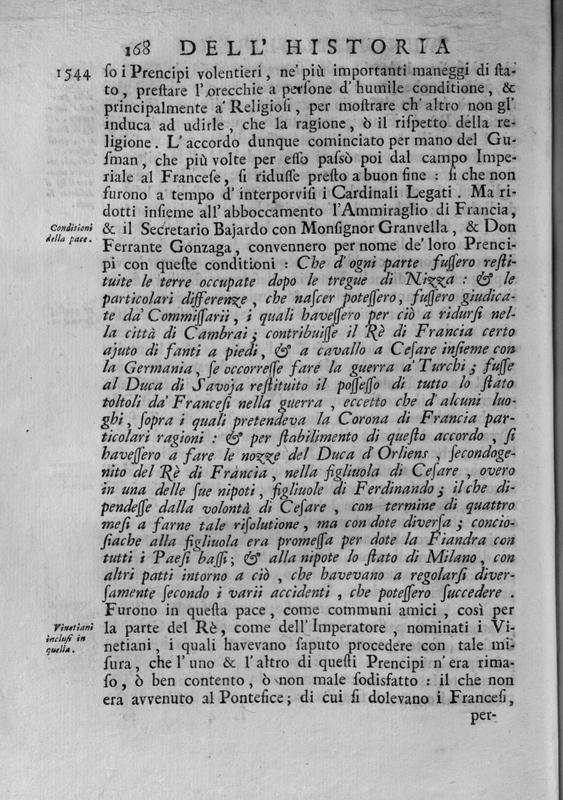 168 DELL' HISTORIA
1544 ſo i Prencipi volentieri, ne' più importanti maneggi di ſta-
to, preſtare l'orecchie a perſone d'humile conditione, &
principalmente a' Religioſi, per moſtrare ch' altro non gl'
induca ad udirle, che la ragione, ò il riſpetto della re-
ligione. L'accordo dunque cominciato per mano del Gu-
ſman, che più volte per eſſo paſsò poi dal campo Impe-
riale al Franceſe, ſi riduſſe preſto a buon fine: ſi che non
furono a tempo d'interporviſi i Cardinali Legati. Ma ri-
dotti inſieme all'abboccamento l'Ammiraglio di Francia,
Conditioni
della pace.
& il Secretario Bajardo con Monſignor Granvella, & Don
Ferrante Gonzaga, convennero per nome de' loro Prenci-
pi con queſte conditioni: Che d'ogni parte fuſſero reſti-
tuite le terre occupate dopo le tregue di Nizza: & le
particolari differenze, che naſcer poteſſero, fuſſero giudica-
te da' Commiſſarii, i quali haveſſero per ciò a ridurſi nel-
la città di Cambrai; contribuiſſe il Rè di Francia certo
ajuto di fanti a piedi, & a cavallo a Ceſare inſieme con
la Germania, ſe occorreſſe fare la guerra a' Turchi; fuſſe
al Duca di Savoja reſtituito il poſſeſſo di tutto lo ſtato
toltoli da' Franceſi nella guerra, eccetto che d'alcuni luo-
ghi, ſopra i quali pretendeva la Corona di Francia par-
ticolari ragioni: & per ſtabilimento di queſto accordo, ſi
haveſſero a fare le nozze del Duca d'Orliens, ſecondoge-
nito del Rè di Francia, nella figliuola di Ceſare, overo
in una delle ſue nipoti, figliuole di Ferdinando; il che di-
pendeſſe dalla volontà di Ceſare, con termine di quattro
meſi a farne tale riſolutione, ma con dote diverſa; concio-
ſiache alla figliuola era promeſſa per dote la Fiandra con
tutti i Paeſi baſſi; & alla nipote lo ſtato di Milano, con
altri patti intorno a ciò, che havevano a regolarſi diver-
ſamente ſecondo i varii accidenti, che poteſſero ſuccedere.
Furono in queſta pace, come communi amici, così per
Vinetiani
incluſi in
quella.
la parte del Rè, come dell'Imperatore, nominati i Vi-
netiani, i quali havevano ſaputo procedere con tale mi-
ſura, che l'uno & l'altro di queſti Prencipi n'era rima-
ſo, ò ben contento, ò non male ſodisfatto: il che non
era avvenuto al Pontefice; di cui ſi dolevano i Franceſi,
per-